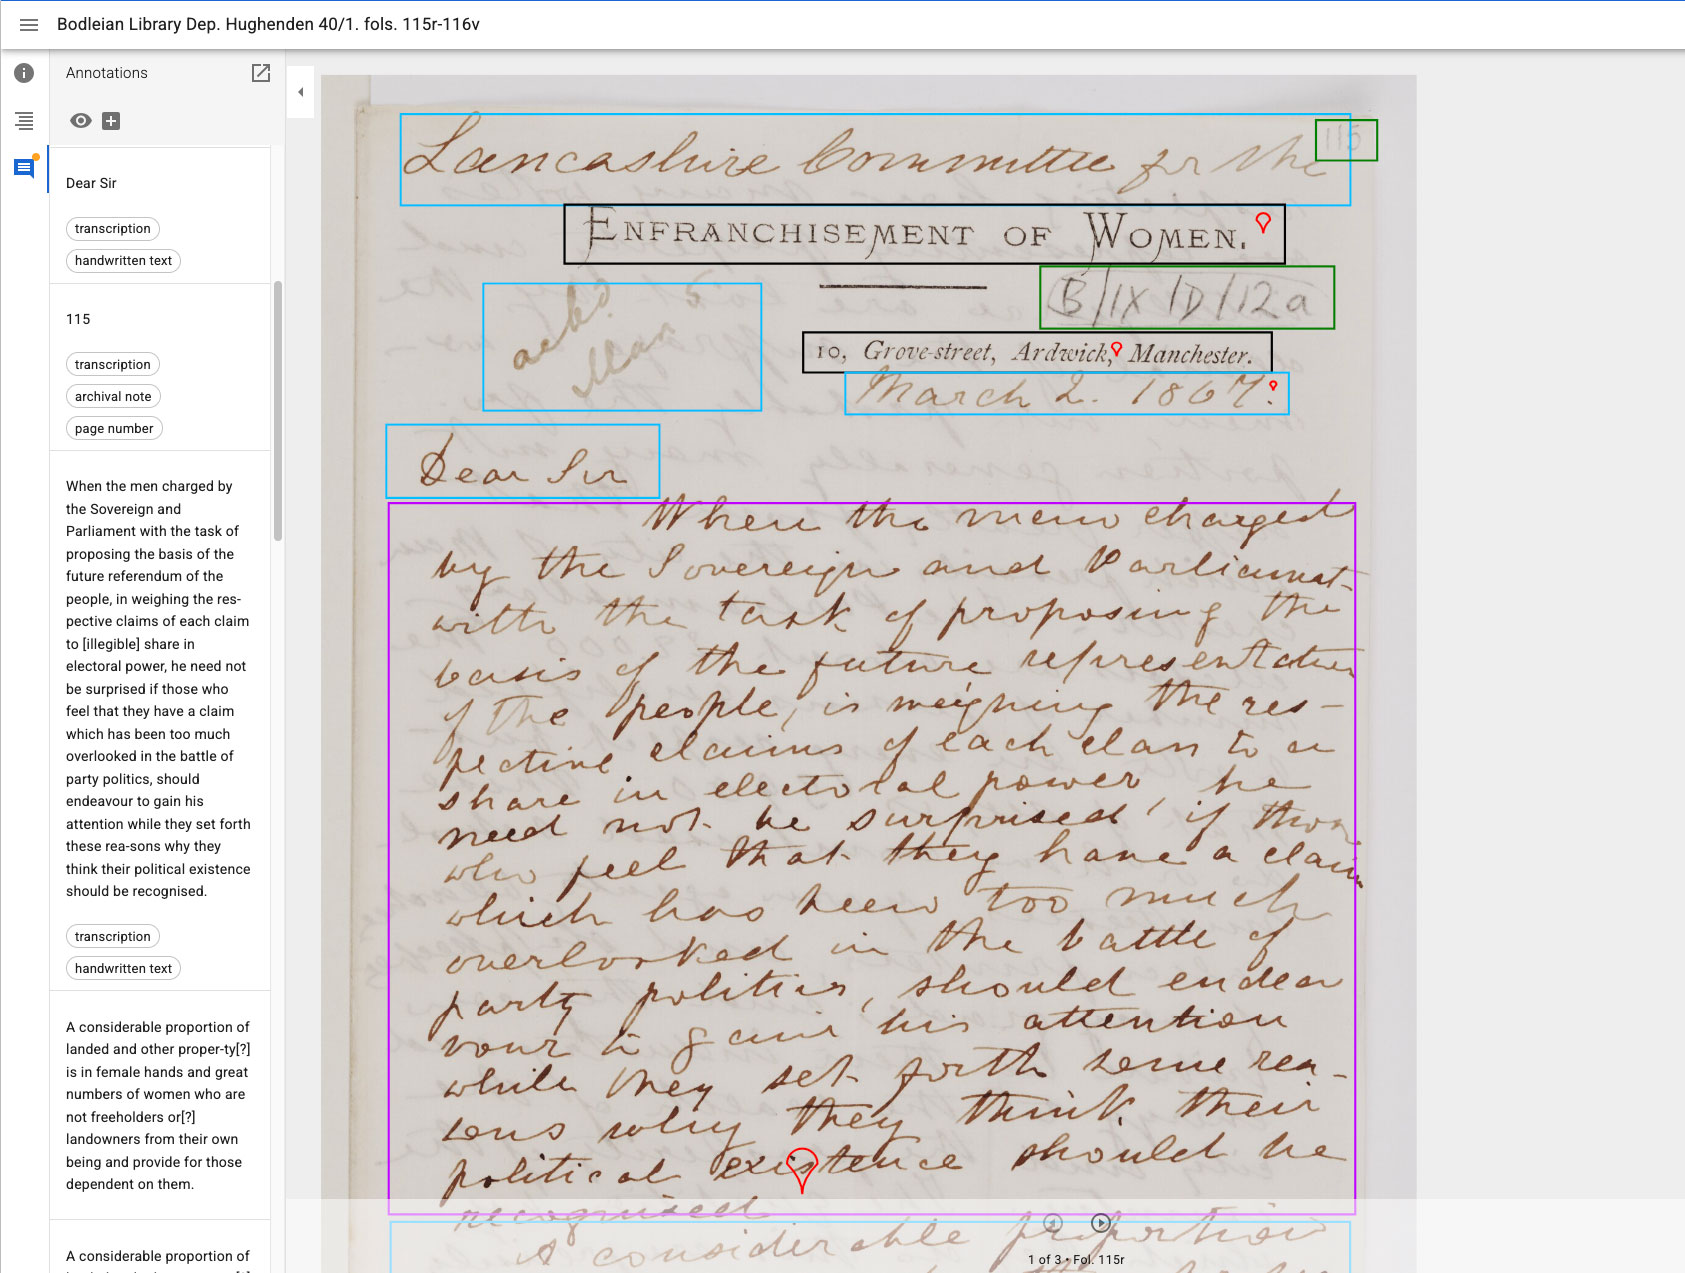 Bodleian Library Dep. Hughenden 40/1. fols. 115r-116v
Annotations
Dear Sir
transcription
handwritten text
115
transcription
archival note
page number
When the men charged by
the Sovereign and
Parliament with the task of
proposing the basis of the
future referendum of the
people, in weighing the res-
pective claims of each claim
to [illegible] share in
electoral power, he need not
be surprised if those who
feel that they have a claim
which has been too much
overlooked in the battle of
party politics, should
endeavour to gain his
attention while they set forth
these rea-sons why they
think their political existence
should be recognised.
transcription
handwritten text
A considerable proportion of
landed and other proper-ty[?]
is in female hands and great
numbers of women who are
not freeholders or[?]
landowners from their own
being and provide for those
dependent on them.
A considerable proportion of
Lancashire Committee for the
115
ENFRANCHISEMENT OF WOMEN.
B/IX/D/12a
ackd
Mar 5
10, Grove-street, Ardwick, Manchester.
March 2. 1867.
Dear Sir
When the men charged
by the Sovereign and Parliament
with the task of proposing the
basis of the future representation
of the people, is weighing the res-
pective claims of each class to a
share in electoral power, he
need not be surprised if those
who feel that they have a claim
which has been too much
overlooked in the battle of
party politics, should endea
vour to gain his attention
while they set forth some rea-
sons why they think their
political existence should be
recognised
A considerable proportion
1 of 3 • Fol. 115r